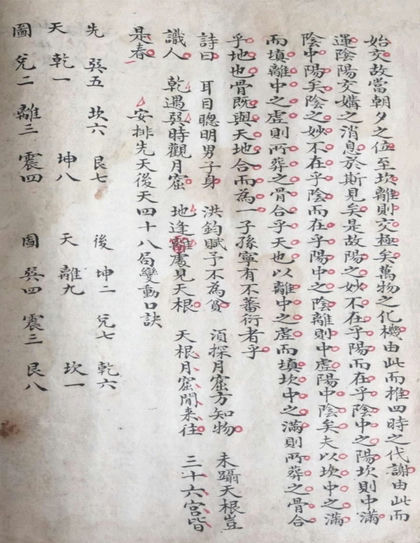 始交故當朝夕之位至坎離則交極矣萬物之化機由此而推四時之代謝由此而
運陰陽交媾之消息於斯見矣是故陽之妙不在乎陽而在乎陰中之陽坎則中滿
陰中陽矣陰之妙不在乎陰而在乎陽中之陰離則中虛陽中陰矣夫以坎中之滿
而填離中之虛則所葬之骨合乎天也以離中之虛而填坎中之滿則所葬之骨合
乎地也骨既與天地合而為一子孫寧有不蕃衍者乎
詩曰 耳目聰明男子身 洪鈞賦予不為貧 須探月窟方知物 未躡天根豈
識人 乾遇巽時觀月窟 地逢雷處見天根 天根月窟閒來往 三十六宮皆
是春 安排先天後天四十八局變動口訣
先 巽五 坎六 艮七 後 坤二 兌七 乾六
天 乾一 坤八 天 離九 坎一
圖 兌二 離三 震四 圖 巽四 震三 艮八